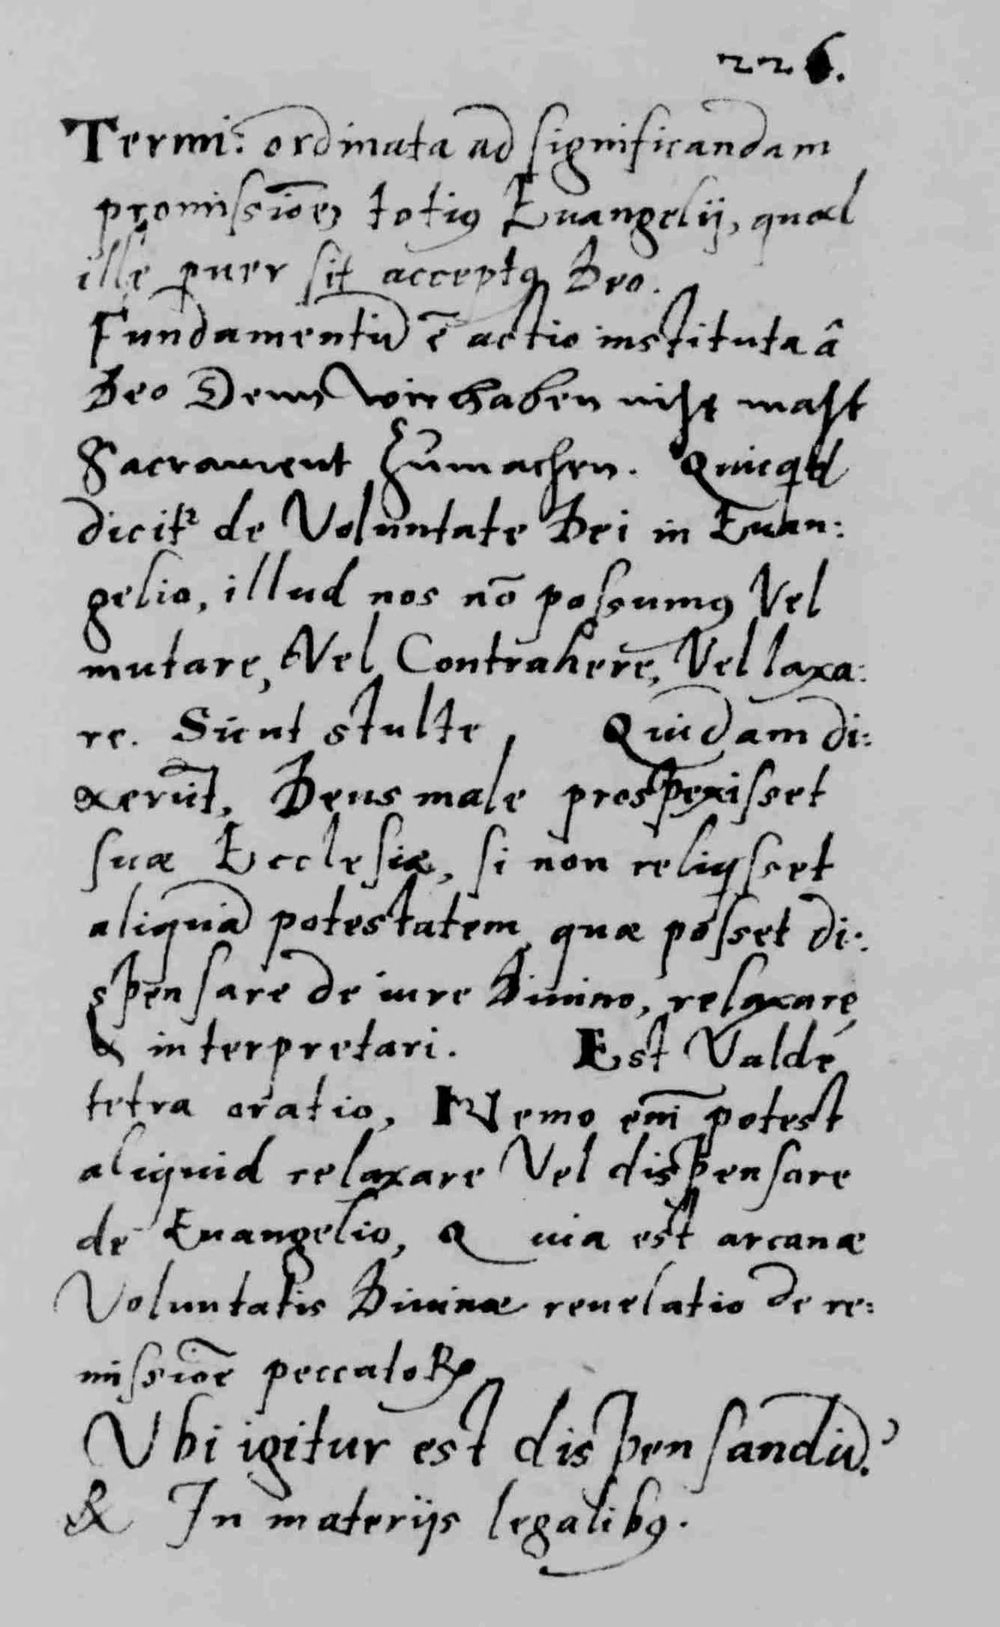 226.
Termi: ordinata ad significandam
promissionẽ totiꝰ Euangelij, quod
ille puer sit acceptꝰ Deo.
Fundamentũ ẽ actio instituta â
Deo Denn wir haben nicht macht
Sacrament zumachen. Quicqͥd
dicitᷣ de Voluntate Dei in Euan:
gelio, illud nos nõ possumꝰ Vel
mutare, Vel Contrahere, Vel laxa:
re. Sicut stulte, Quidam di:
xerũt, Deus male prospexisset
suæ Ecclesiæ, si non reliqͥsset
aliquã potestatem, quæ posset di:
spensare de iure Diuino, relaxare,
& interpretari. Est Valde
tetra oratio, Nemo em̃ potest
aliquid relaxare Vel dispensare
de Euangelio, Quia est arcanæ
Voluntatis Diuinæ reuelatio de re:
missiõe peccatoꝝ
Ubi igitur est dispensandũ?
& In materijs legalibꝰ.